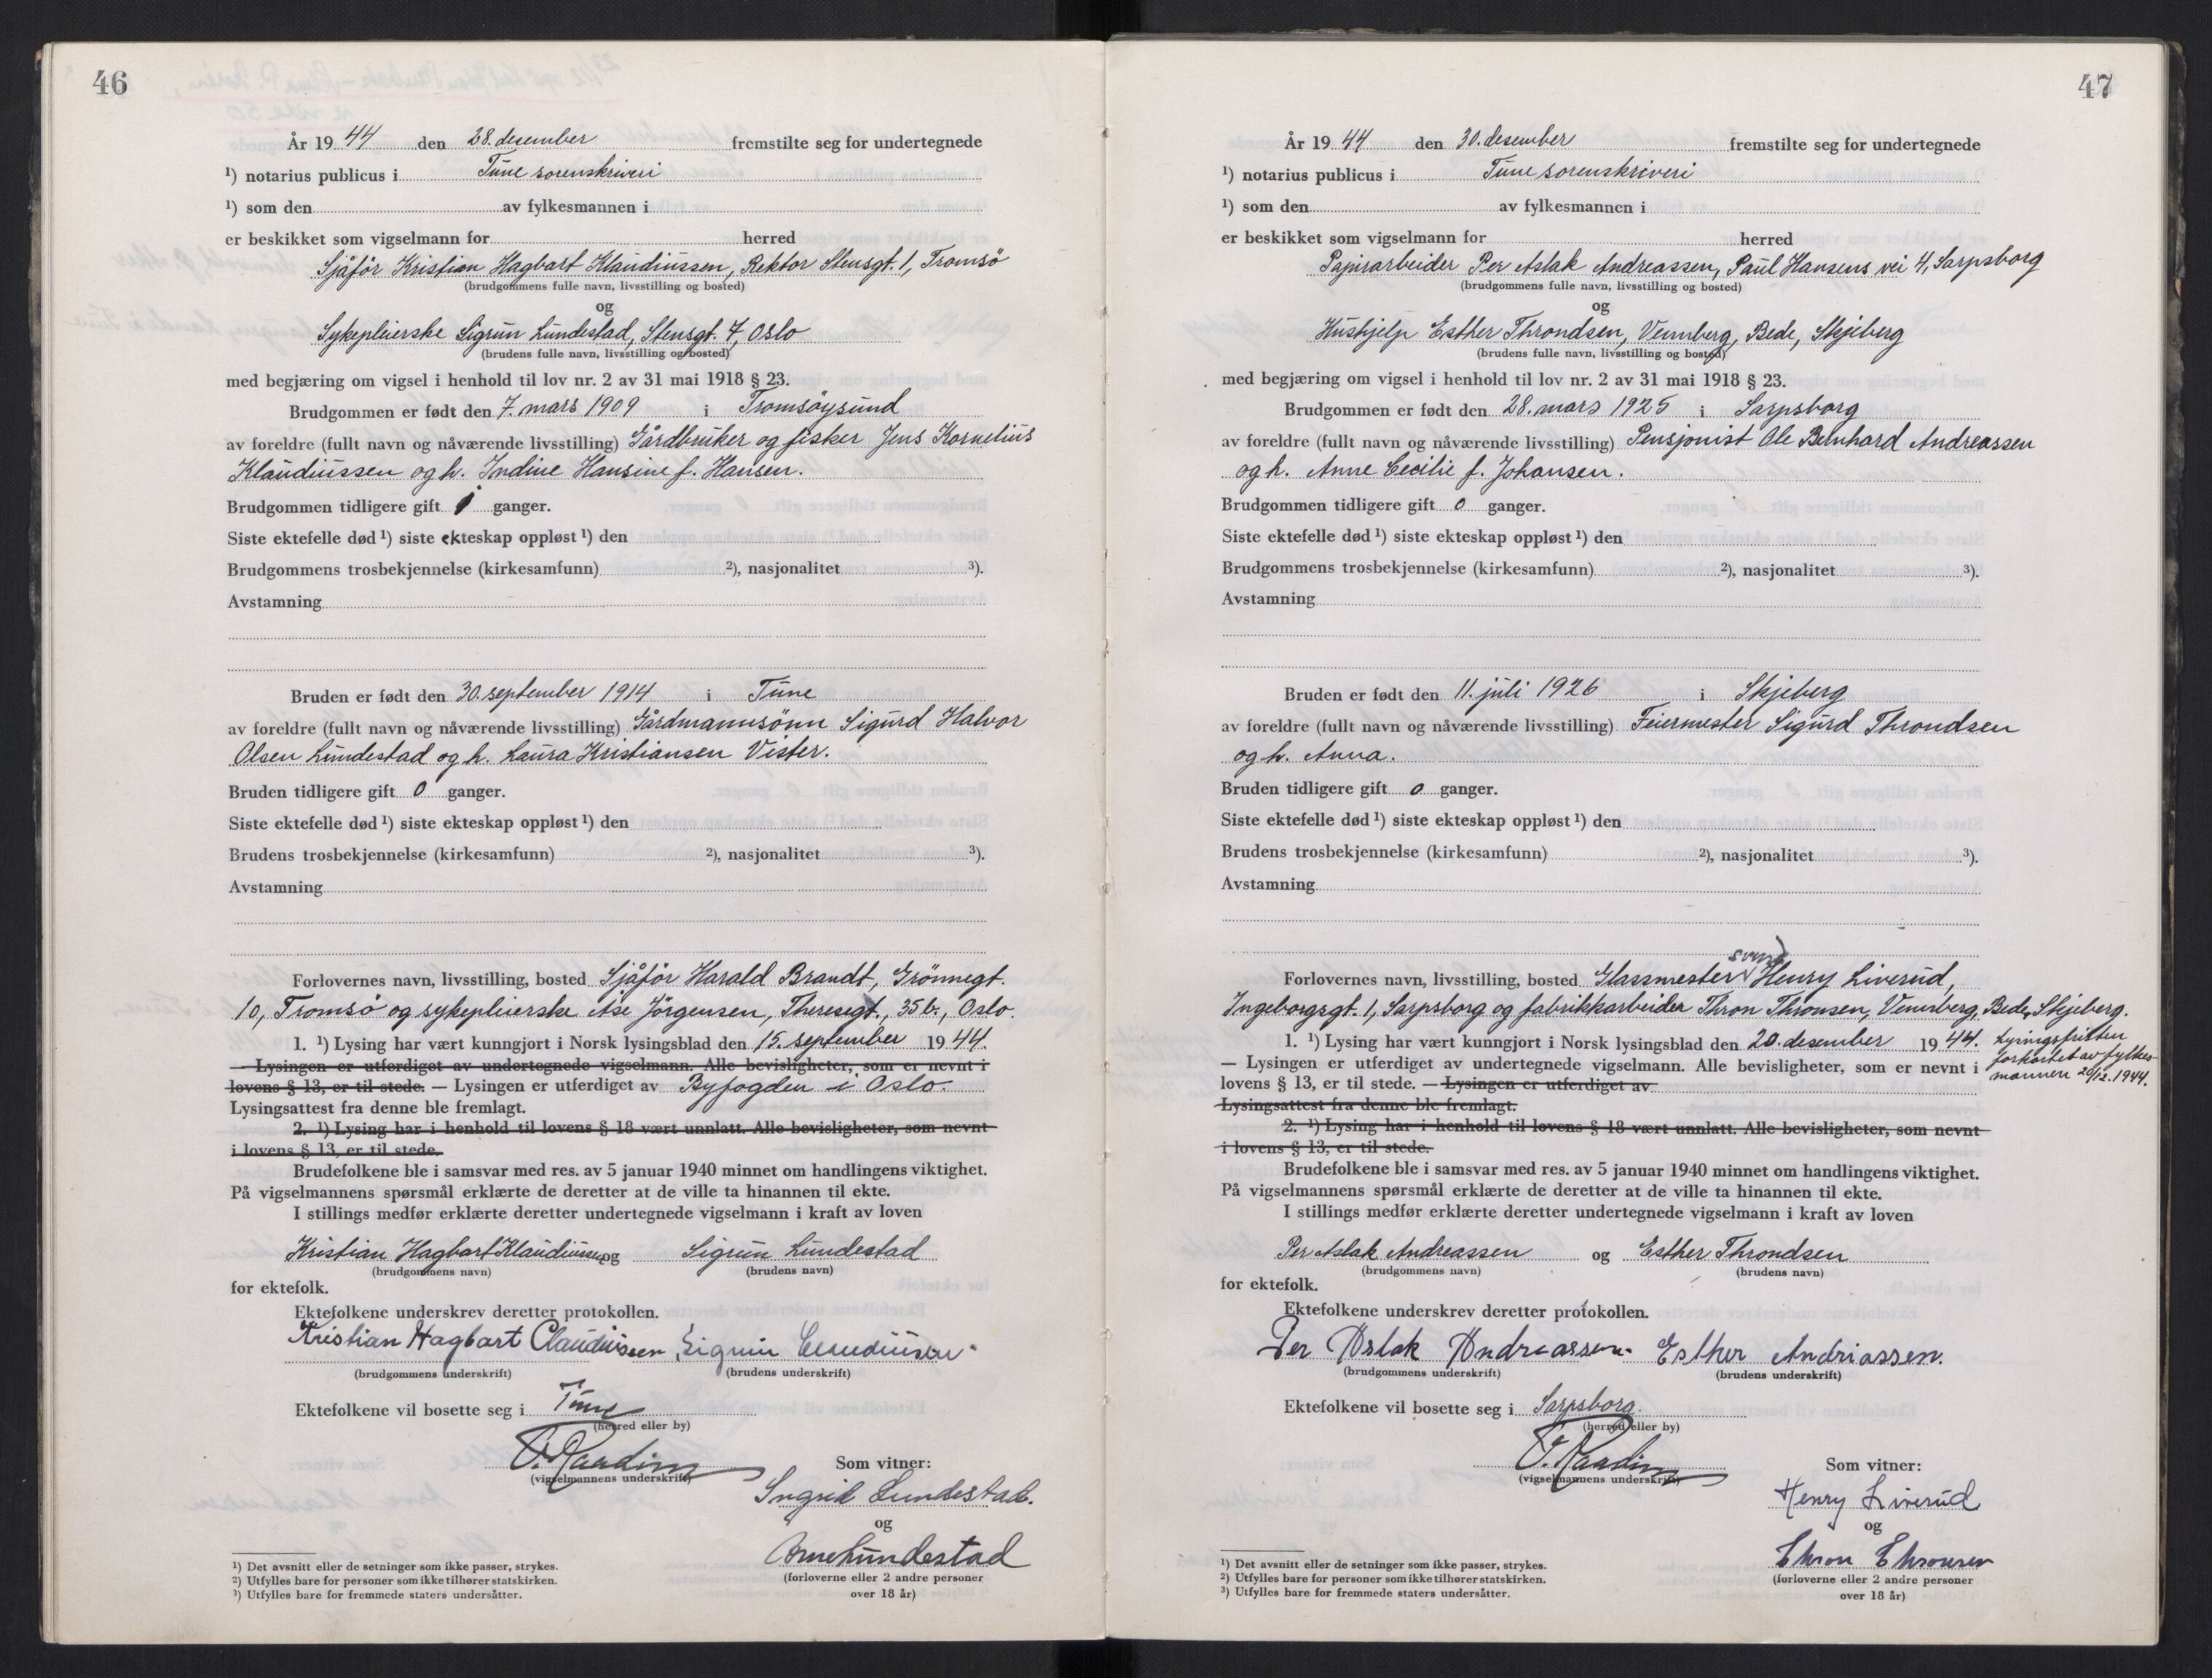 46
År 1944 den 28. desember fremstilte seg for undertegnede
¹) notarius publicus i Tune sorenskriveri
¹) som den av fylkesmannen i
er beskikket som vigselmann for herred
Sjåför Kristian Hagbart Klaudiussen, Rektor Stensgt. 1, Tromsö
(brudgommens fulle navn, livsstilling og bosted)
og
Sykepleierske Sigrun Lundestad, Stensgt. 7, Oslo
(brudens fulle navn, livsstilling og bosted)
med begjæring om vigsel i henhold til lov nr. 2 av 31 mai 1918 § 23.
Brudgommen er født den 7. mars 1909 i Tromsöysund
av foreldre (fullt navn og nåværende livsstilling) Gårdbruker og fisker Jens Kornelius
Klaudiussen og h. Indine Hansine f. Hansen.
Brudgommen tidligere gift ganger.
Siste ektefelle død ¹) siste ekteskap oppløst ¹) den
Brudgommens trosbekjennelse (kirkesamfunn) ²), nasjonalitet ³).
Avstamning
Bruden er født den 30. september 1914 i Tune
av foreldre (fullt navn og nåværende livsstilling) Gårdmannsönn Sigurd Halvor
Olsen Lundestad og h. Laura Kristiansen Vister.
Bruden tidligere gift 0 ganger.
Siste ektefelle død ¹) siste ekteskap oppløst ¹) den
Brudens trosbekjennelse (kirkesamfunn) ²), nasjonalitet ³).
Avstamning
Forlovernes navn, livsstilling, bosted Sjåför Harald Brandt, Grönnegt.
10, Tromsö og sykepleierske Åse Jörgensen, Theresegt., 35 b., Oslo.
1. ¹) Lysing har vært kunngjort i Norsk lysingsblad den 15. september 1944.
— Lysingen er utferdiget av undertegnede vigselmann. Alle bevisligheter, som er nevnt i
lovens § 13, er til stede. — Lysingen er utferdiget av Byfogden i Oslo.
Lysingsattest fra denne ble fremlagt.
2. ¹) Lysing har i henhold til lovens § 18 vært unnlatt. Alle bevisligheter, som nevnt
i lovens § 13, er til stede.
Brudefolkene ble i samsvar med res. av 5 januar 1940 minnet om handlingens viktighet.
På vigselmannens spørsmål erklærte de deretter at de ville ta hinannen til ekte.
I stillings medfør erklærte deretter undertegnede vigselmann i kraft av loven
Kristian Hagbart Klaudiussen og Sigrun Lundestad
(brudgommens navn) (brudens navn)
for ektefolk.
Ektefolkene underskrev deretter protokollen.
Kristian Hagbart Claudiussen Sigrun Claudiussen
(brudgommens underskrift) (brudens underskrift)
Ektefolkene vil bosette seg i Tune
(herred eller by)
(vigselmannens underskrift)
Som vitner:
Ingrid Lundestad.
og
Arne Lundestad
(forloverne eller 2 andre personer
over 18 år)
¹) Det avsnitt eller de setninger som ikke passer, strykes.
²) Utfylles bare for personer som ikke tilhører statskirken.
³) Utfylles bare for fremmede staters undersåtter.
47
År 1944 den 30. desember fremstilte seg for undertegnede
¹) notarius publicus i Tune sorenskriveri
¹) som den av fylkesmannen i
er beskikket som vigselmann for herred
Papirarbeider Per Aslak Andreassen, Paul Hansens vei 4, Sarpsborg
(brudgommens fulle navn, livsstilling og bosted)
og
Hushjelp Esther Throndsen, Vennberg, Bede, Skjeberg
(brudens fulle navn, livsstilling og bosted)
med begjæring om vigsel i henhold til lov nr. 2 av 31 mai 1918 § 23.
Brudgommen er født den 28. mars 1925 i Sarpsborg
av foreldre (fullt navn og nåværende livsstilling) Pensjonist Ole Bernhard Andreassen
og h. Anne Cecilie f. Johansen.
Brudgommen tidligere gift 0 ganger.
Siste ektefelle død ¹) siste ekteskap oppløst ¹) den
Brudgommens trosbekjennelse (kirkesamfunn) ²), nasjonalitet ³).
Avstamning
Bruden er født den 11. juli 1926 i Skjeberg
av foreldre (fullt navn og nåværende livsstilling) Feiermester Sigurd Throndsen
og h. Anna.
Bruden tidligere gift 0 ganger.
Siste ektefelle død ¹) siste ekteskap oppløst ¹) den
Brudens trosbekjennelse (kirkesamfunn) ²), nasjonalitet ³).
Avstamning
svend
Forlovernes navn, livsstilling, bosted Glassmester Henry Liverud,
Ingeborgsgt. 1, Sarpsborg og fabrikkarbeider Thron Thronsen, Vennberg, Bede, Skjeberg.
1. ¹) Lysing har vært kunngjort i Norsk lysingsblad den 20. desember 1944. Lysingsfristen
— Lysingen er utferdiget av undertegnede vigselmann. Alle bevisligheter, som er nevnt i forkortet av fylkes-
lovens § 13, er til stede. — Lysingen er utferdiget av mannen 20/12.1944.
Lysingsattest fra denne ble fremlagt.
2. ¹) Lysing har i henhold til lovens § 18 vært unnlatt. Alle bevisligheter, som nevnt
i lovens § 13, er til stede.
Brudefolkene ble i samsvar med res. av 5 januar 1940 minnet om handlingens viktighet.
På vigselmannens spørsmål erklærte de deretter at de ville ta hinannen til ekte.
I stillings medfør erklærte deretter undertegnede vigselmann i kraft av loven
Per Aslak Andreassen og Esther Throndsen
(brudgommens navn) (brudens navn)
for ektefolk.
Ektefolkene underskrev deretter protokollen.
Per Aslak Andreassen. Esther Andriassen.
(brudgommens underskrift) (brudens underskrift)
Ektefolkene vil bosette seg i Sarpsborg.
(herred eller by)
(vigselmannens underskrift)
Som vitner:
Henry Liverud
og
Thron Thronsen
(forloverne eller 2 andre personer
over 18 år)
¹) Det avsnitt eller de setninger som ikke passer, strykes.
²) Utfylles bare for personer som ikke tilhører statskirken.
³) Utfylles bare for fremmede staters undersåtter.